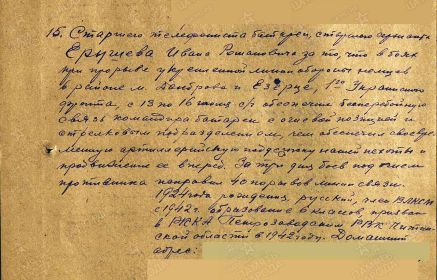 15. Старшего телефониста батареи, старшего сержанта
Ерышева Ивана Романовича за то, что в боях
при прорыве укрепленной линии обороны немцев
в районе м. Домброва и Езерце, 1го Украинского
фронта, с 13 по 16 июля с/г обеспечил бесперебойную
связь командира батареи с огневой позицией и
стрелковым подразделением, чем обеспечил своевре-
менную артиллерийскую поддержку нашей пехоты и
продвижение ее вперед. За три дня боев под огнем
противника поправил 40 порывов линии связи.
1924 года рождения, русский, член ВЛКСМ
с 1942г. образование 6 классов, призван
в РККА Петрозаводским РВК Читин-
ской области в 1942 году. Домашний
адрес: